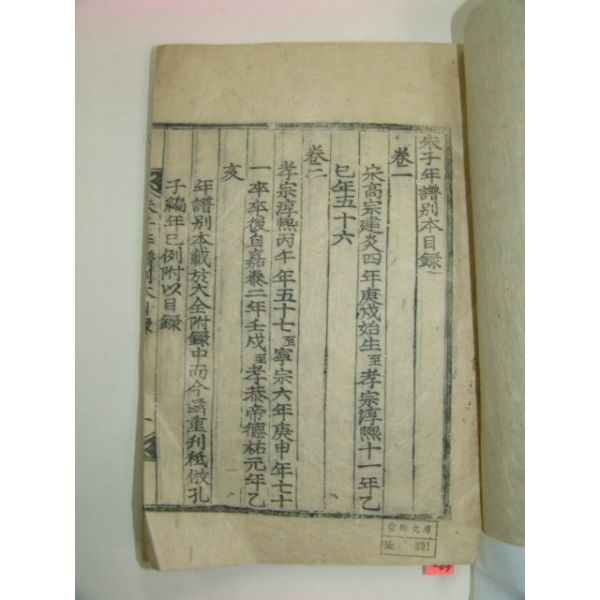 朱子年譜別本目錄
卷一
宋高宗建炎四年庚戌始生至孝宗淳熙十一年乙
巳年五十六
卷二
孝宗淳熙丙午年五十七至寧宗六年庚申年七十
一卒卒後自嘉泰二年壬戌至孝恭帝德祐元年乙
亥
年譜別本載於大全附錄中而今為重刊秪倣孔
子編年已例附以目錄
朱子年譜別本目錄
一
川文庫
No 391